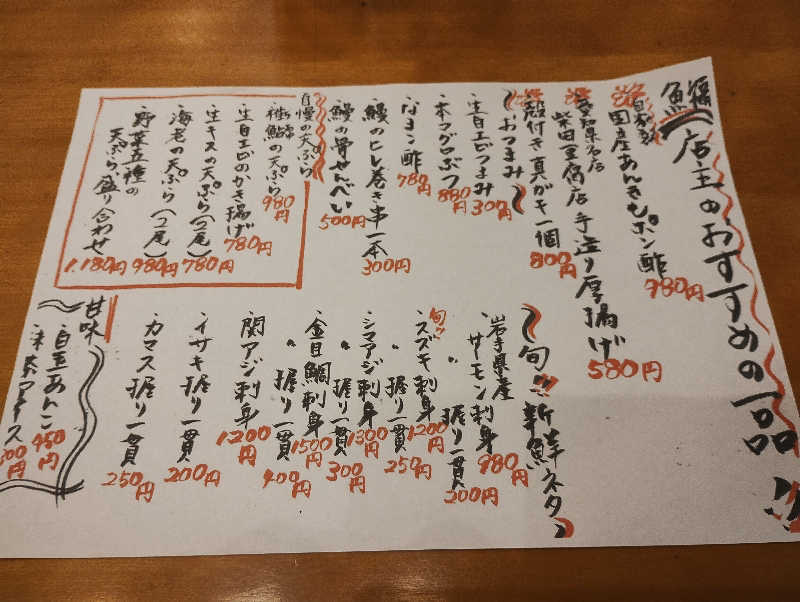 魚福 店主のおすすめの一品!!
自家製
国産あんきもポン酢 980円
愛知県名店
柴田豆腐店 手造り厚揚げ 580円
殻付き真ガキ一個 800円
〜おつまみ〜
生白エビつまみ 300円
本マグロぶつ 880円
なまこ酢 780円
鰻のヒレ巻き串一本 300円
鰻の骨せんべい 500円
自慢の天ぷら
稚鮎の天ぷら 980円
生白エビのかき揚げ 780円
生キスの天ぷら(2尾) 780円
海老の天ぷら(2尾) 980円
野菜五種の
天ぷら盛り合わせ 1.180円
〜旬!!新鮮ネタ〜
岩手県産
サーモン刺身 980円
〃 握り一貫 200円
旬!!
スズキ刺身 1200円
〃 握り一貫 250円
シマアジ刺身 1300円
〃 握り一貫 300円
金目鯛刺身 1500円
〃 握り一貫 400円
関アジ刺身 1200円
イサキ握り一貫 200円
カマス握り一貫 250円
甘味
白玉あんこ 450円